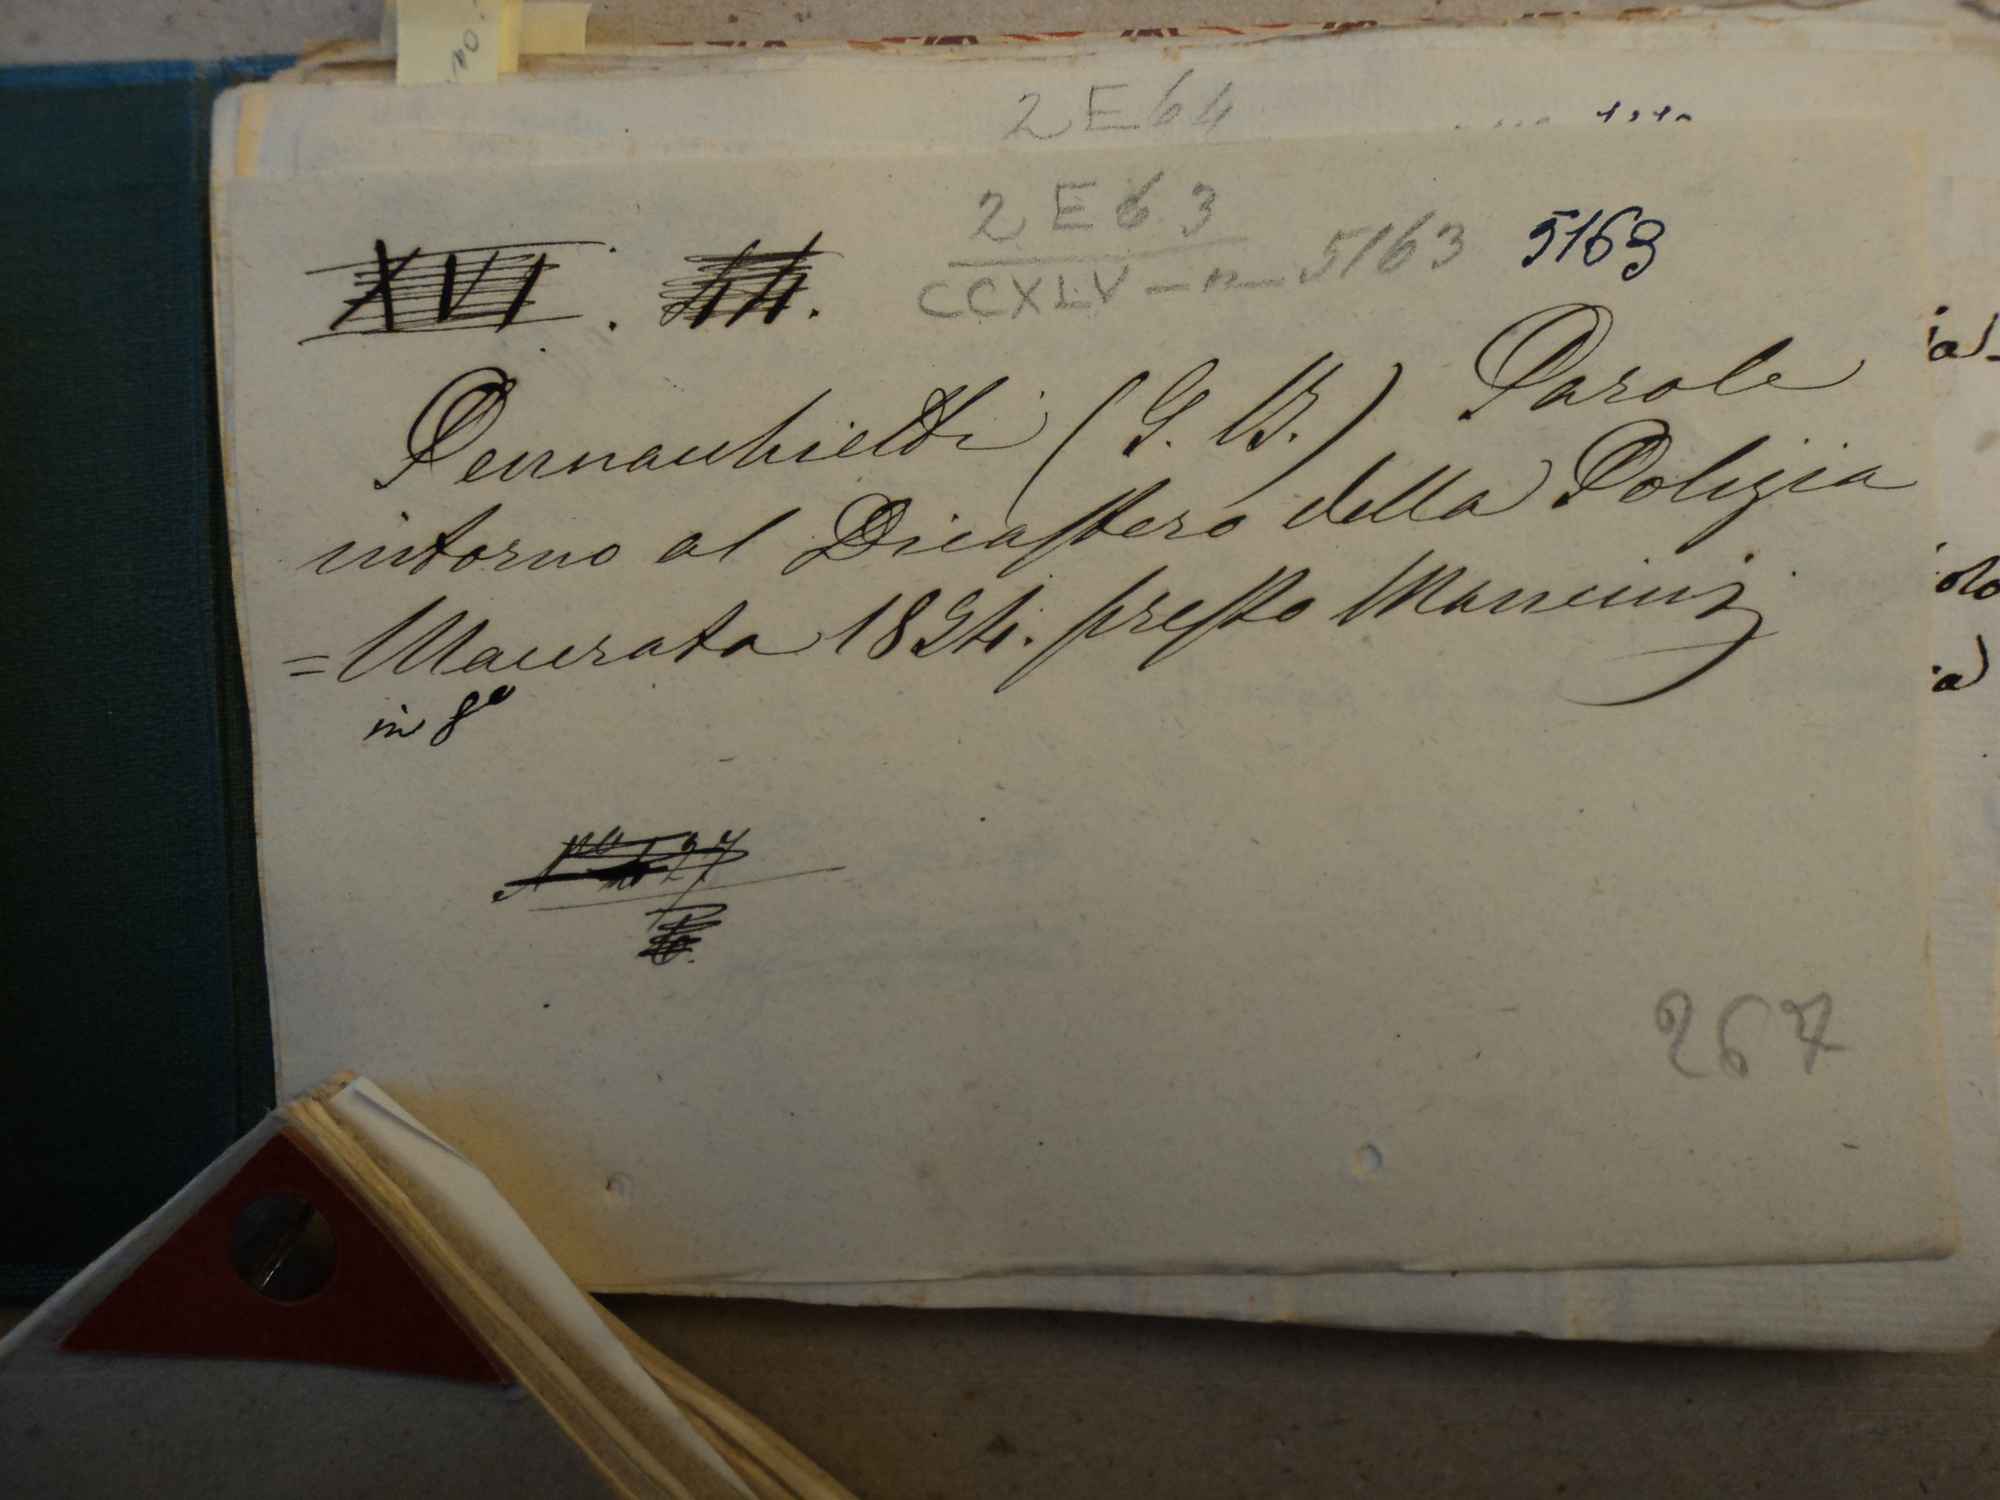 2 E 64
2 E 63
XVI. 44. CCXLV - n - 5163 5163
Pennacchietti (G. B.) Parole
intorno al Dicastero della Polizia
= Macerata 1824. presso Mancini
in 8°
267